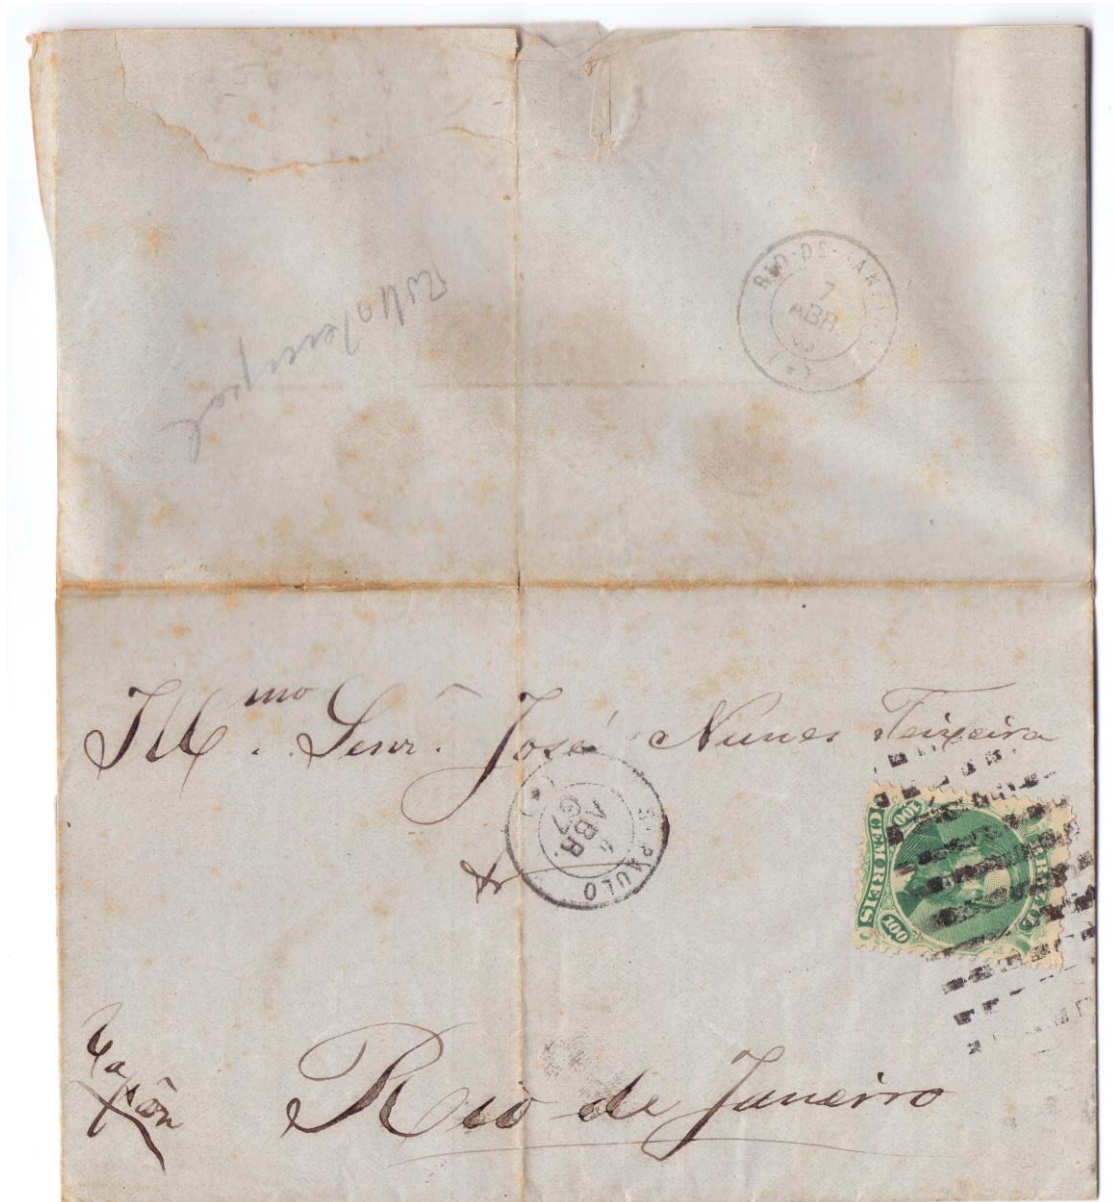 RIO-DE-JANEIRO
7
ABR.
Illmo. Senr. José Nunes Teixeira
S. PAULO
ABR.
67
BRAZIL
100
CEM REIS
100
Rio de Janeiro